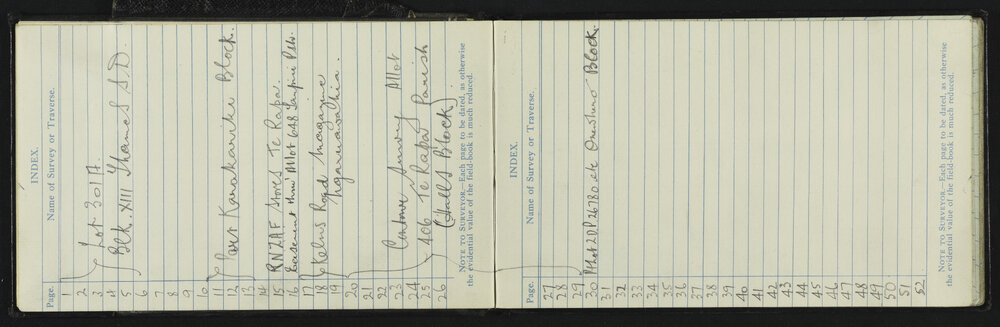 INDEX.
Page. Name of Survey or Traverse.
1
2
3 Lot 301A.
4 Blk. XIII Thames S.D.
5
6
7
8
9
10
11
12 Part Karakariki Block.
13
14
15 RNZAF Stores Te Rapa.
16 Easement thro' Allot 648 Parish
17
18 Kelms Road Magazine
19 Ngaruawahia.
20
21
22
23 Contour Survey Allot
24
25 406 Te Rapa Parish
26 (Halls Block)
NOTE TO SURVEYOR.—Each page to be dated, as otherwise
the evidential value of the field-book is much reduced.
INDEX.
Page. Name of Survey or Traverse.
27
28
29
30 Block.
31
32
33
34
35
36
37
38
39
40
41
42
43
44
45
46
47
48
49
50
51
52
NOTE TO SURVEYOR.—Each page to be dated, as otherwise
the evidential value of the field-book is much reduced.